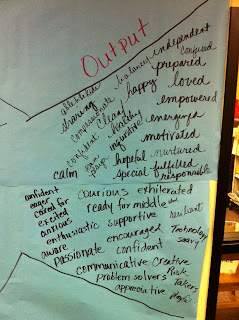 Output
able to listen balanced independent
sharing confused
compassionate happy prepared
clean loved
confident healthy empowered
inquisitive energized
motivated
calm hopeful nurtured
special fulfilled
responsible
confident curious exhilerated
eager
cared for ready for middle
excited
anxious supportive resilient
enthusiastic
aware encouraged Technology
passionate confident savvy
communicative creative
Problem solvers Risk
takers
appreciative playful